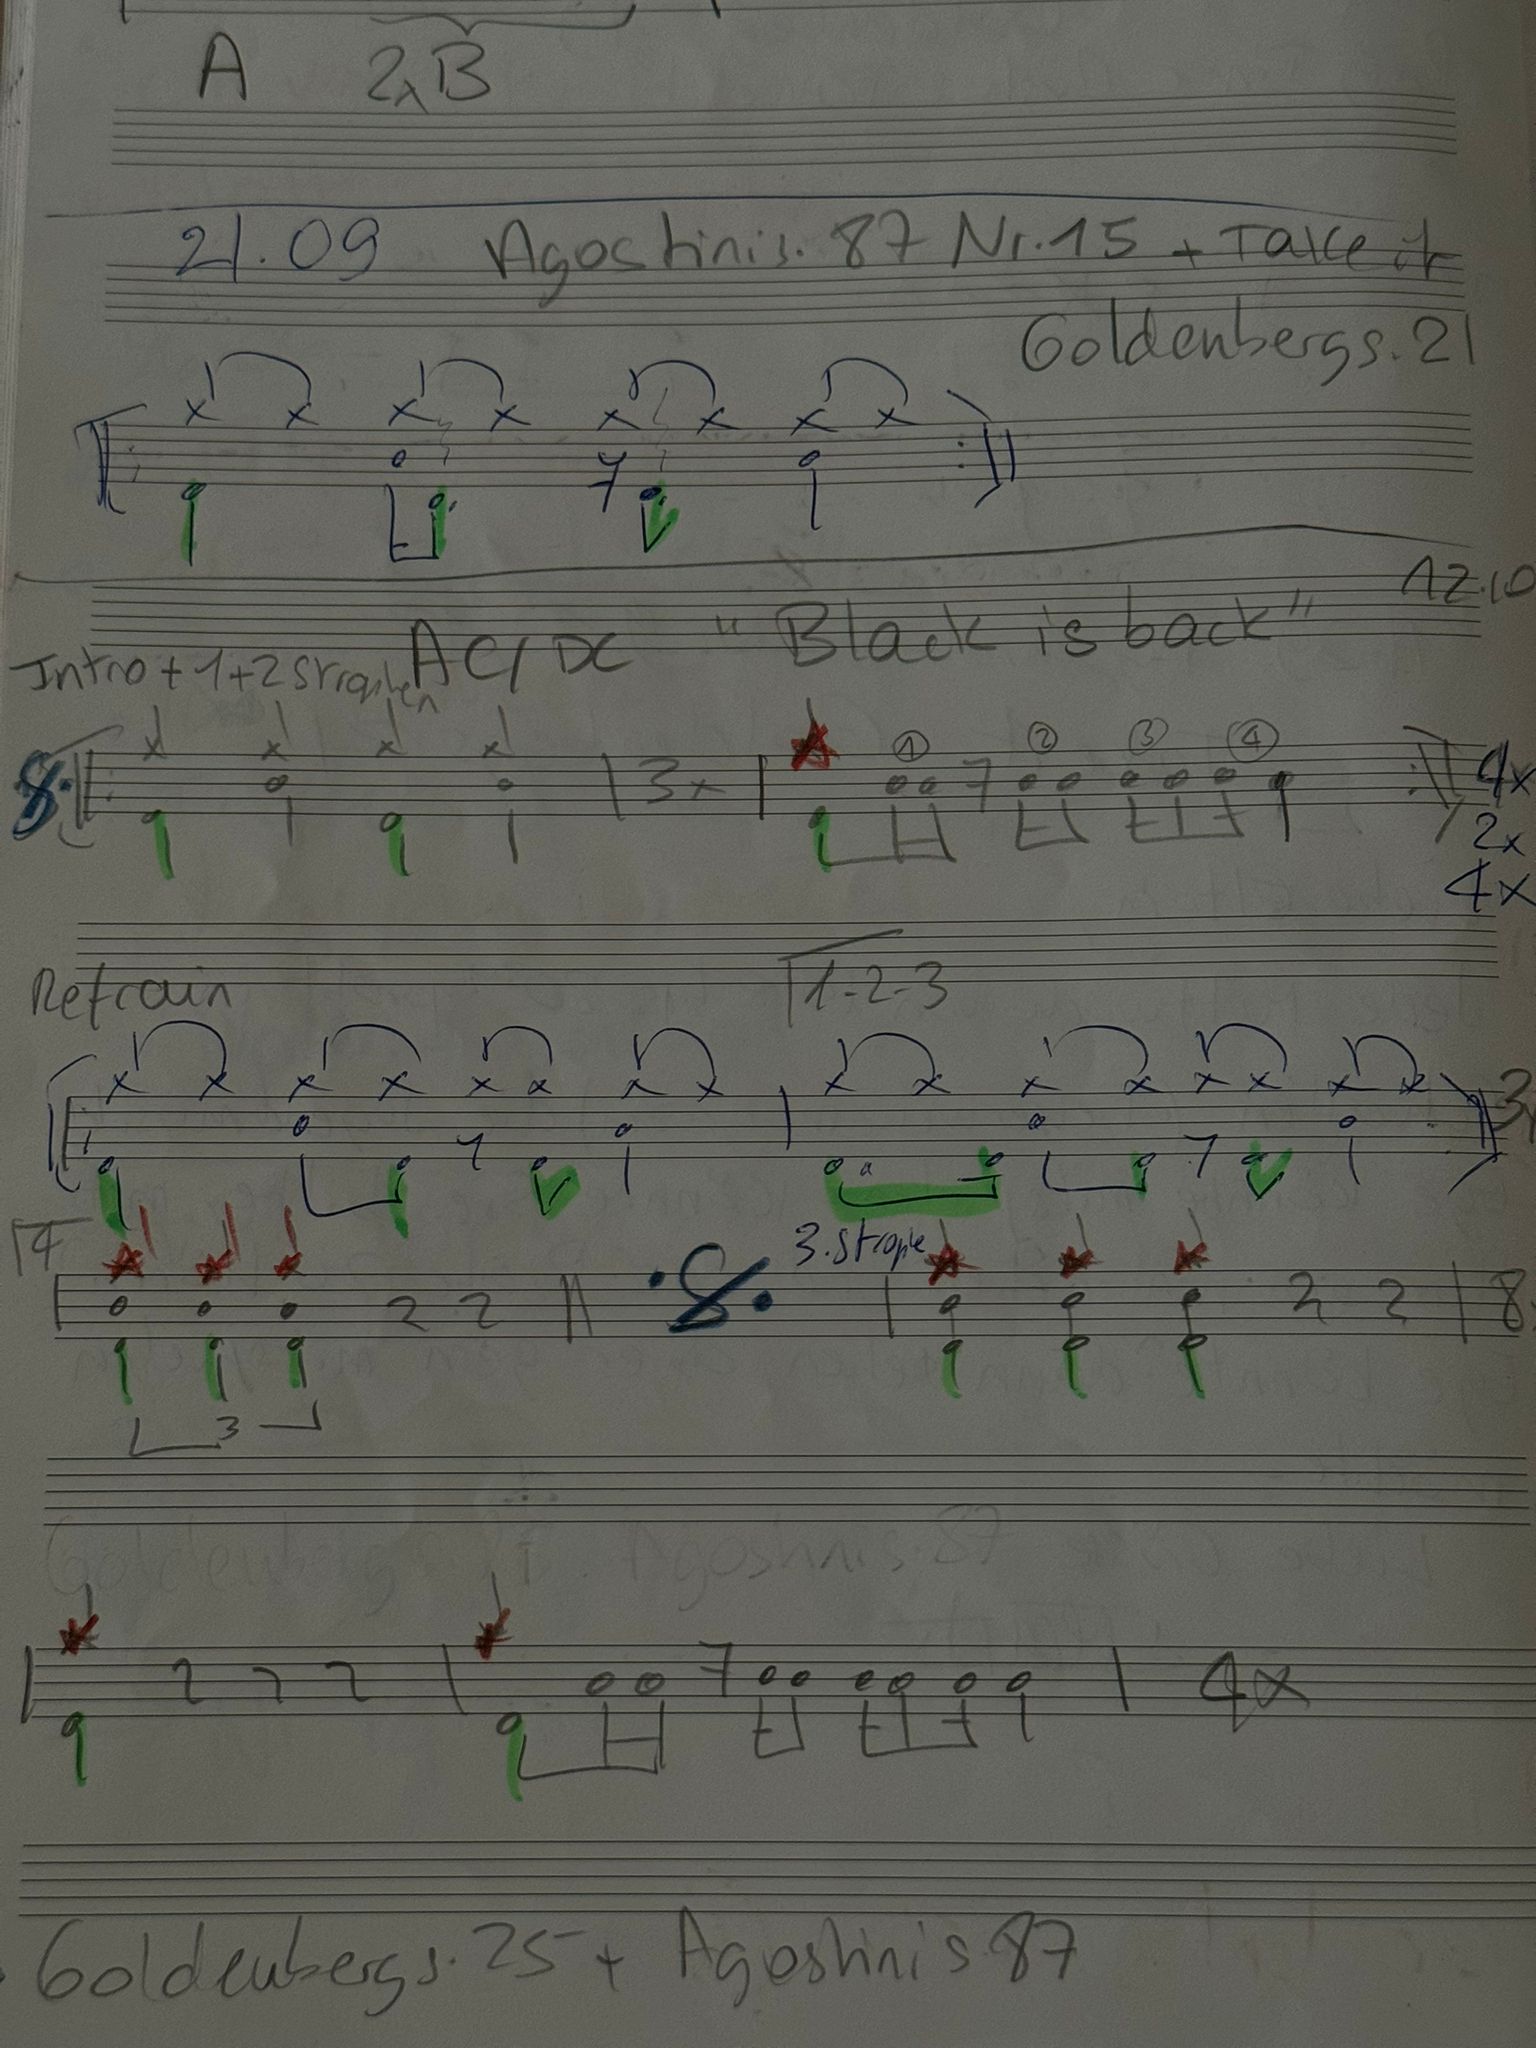 A 2xB
21.09 Agostini s. 87 Nr. 15 + Take it
Goldenberg s. 21
12.10
AC/DC "Black is back"
Intro + 1+2 Strophen
3x
1 2 3 4
4x
2x
4x
Refrain
1-2-3
3x
4
3. Strophe
8
3
4x
Goldenberg s. 25 + Agostini s. 87